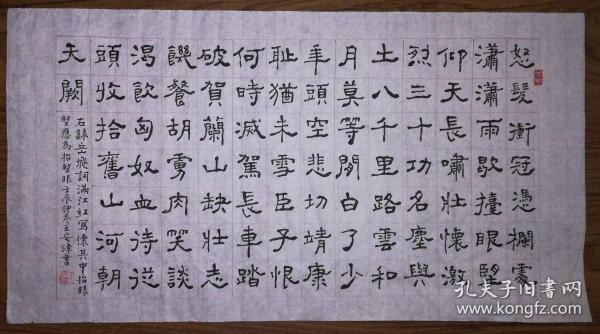 怒髮衝冠憑欄處
瀟瀟雨歇擡眼望
仰天長嘯壯懷激
烈三十功名塵與
土八千里路雲和
月莫等閒白了少
年頭空悲切靖康
恥猶未雪臣子恨
何時滅駕長車踏
破賀蘭山缺壯志
饑餐胡虜肉笑談
渴飲匈奴血待從
頭收拾舊山河朝
天闕
右錄岳飛詞滿江紅寫懷其中抬眼
望應為抬望眼壬辰仲冬王安津書
孔夫子旧书网
www.kongfz.com